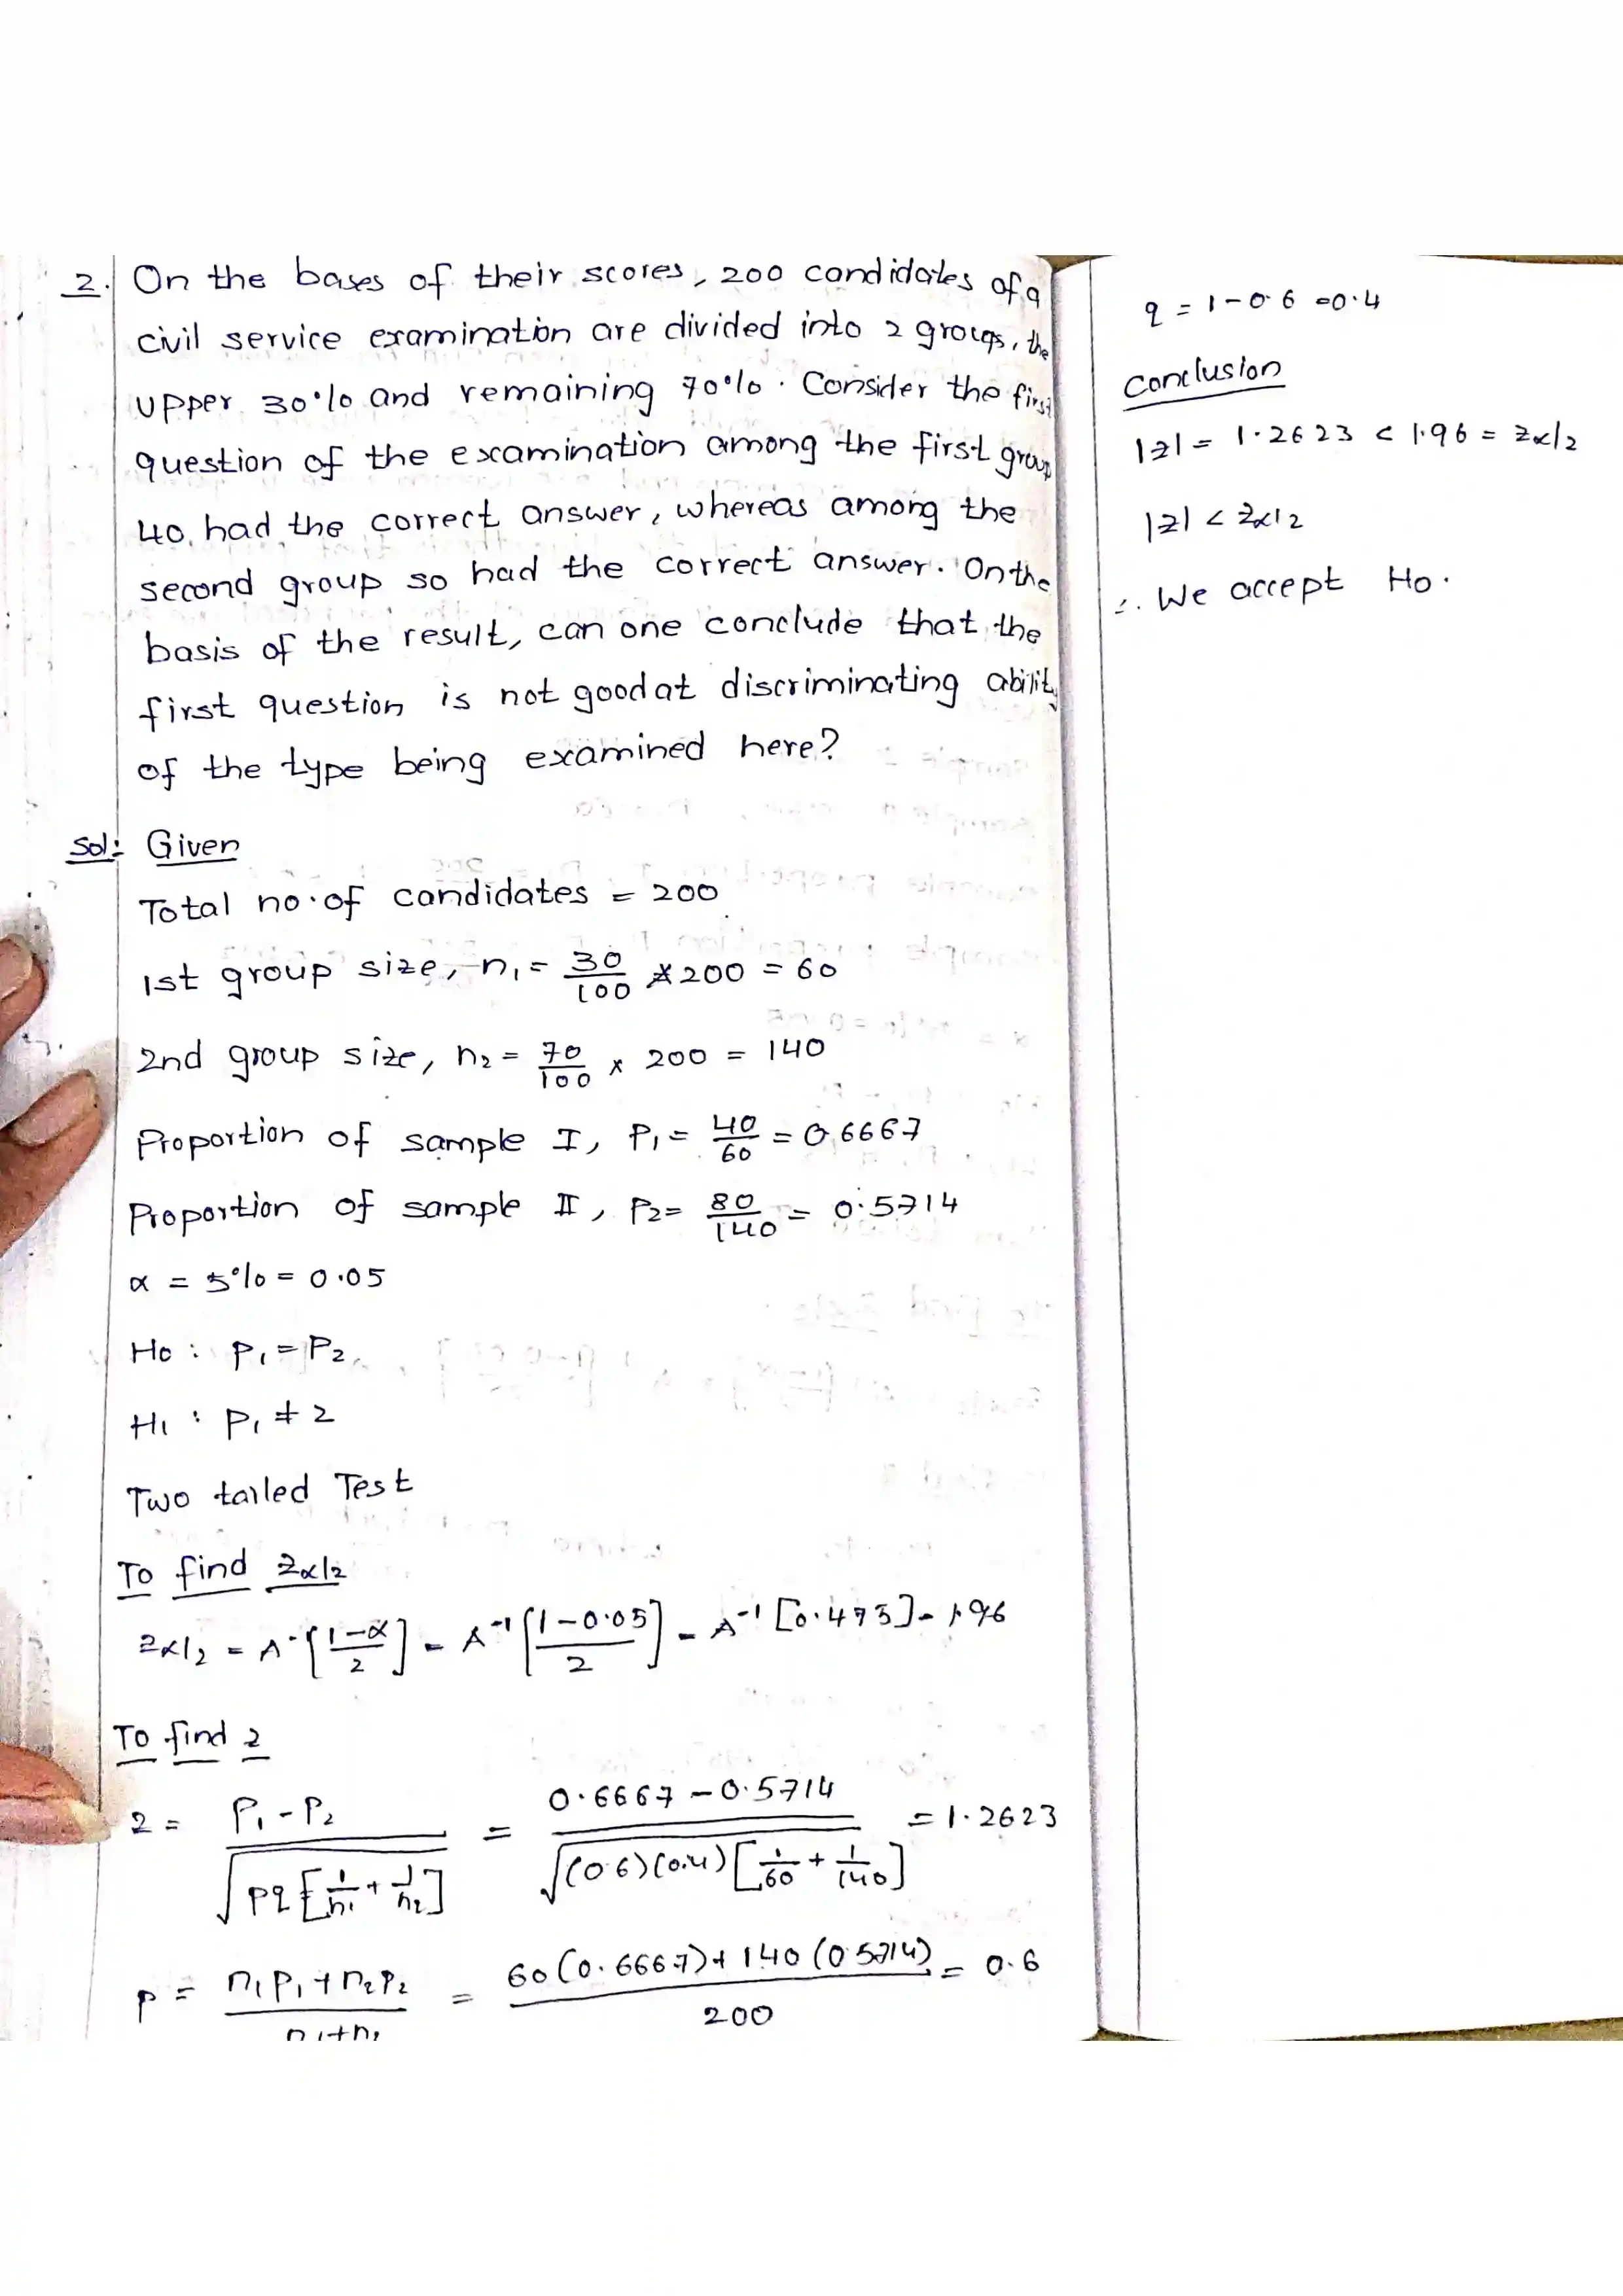 2. On the bases of their scores, 200 candidates of a
civil service examination are divided into 2 groups, the
upper 30% and remaining 70%. Consider the first
question of the examination among the first group
40 had the correct answer, whereas among the
second group so had the correct answer. On the
basis of the result, can one conclude that the
first question is not good at discriminating ability
of the type being examined here?
Sol: Given
Total no. of candidates = 200
1st group size, n₁ = 30/100 × 200 = 60
2nd group size, n₂ = 70/100 × 200 = 140
Proportion of sample I, P₁ = 40/60 = 0.6667
Proportion of sample II, P₂ = 80/140 = 0.5714
α = 5% = 0.05
H₀ : P₁ = P₂
H₁ : P₁ ≠ 2
Two tailed Test
To find Zα/2
Zα/2 = A⁻¹[(1-α)/2] = A⁻¹[(1-0.05)/2] = A⁻¹[0.475] = 1.96
To find z
z = (P₁-P₂)/√(pq[1/n₁ + 1/n₂]) = (0.6667-0.5714)/√((0.6)(0.4)[1/60 + 1/140]) = 1.2623
p = (n₁p₁+n₂p₂)/(n₁+n₂) = (60(0.6667)+140(0.5714))/200 = 0.6
q = 1-0.6 = 0.4
Conclusion
|z| = 1.2623 < 1.96 = Zα/2
|z| < Zα/2
∴ We accept H₀.